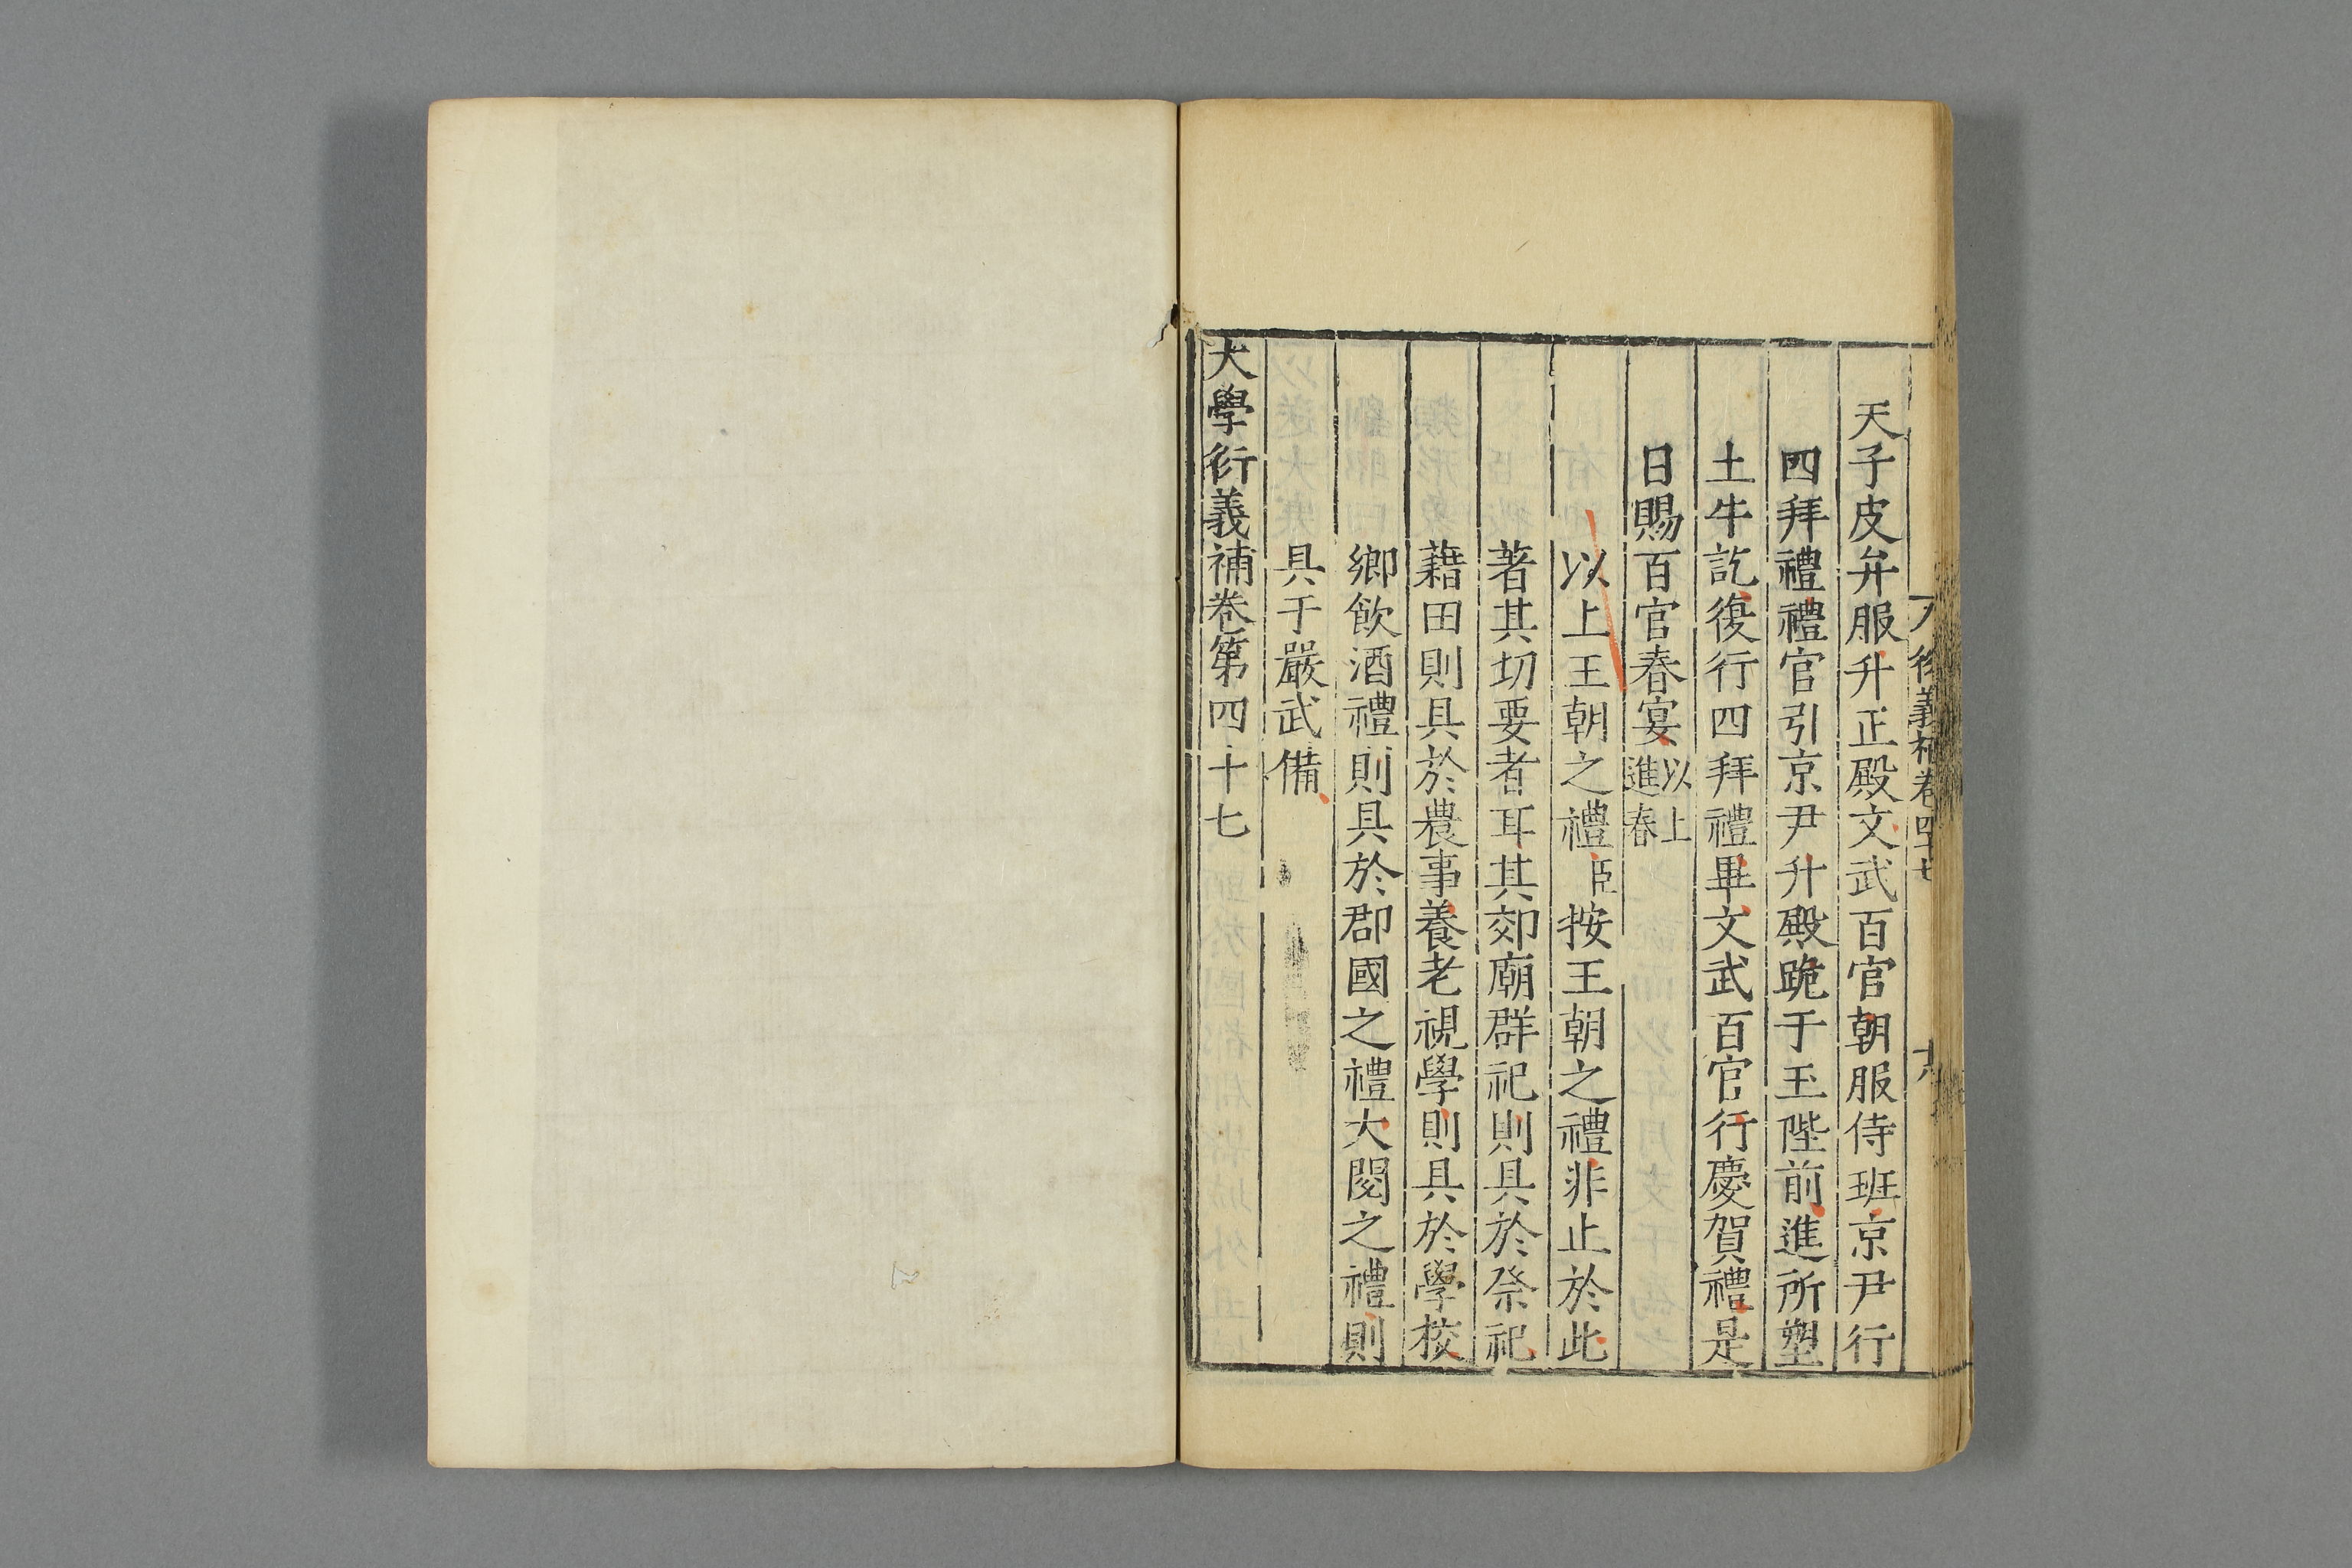 天子皮弁服升正殿文武百官朝服侍班京尹行
四拜禮禮官引京尹升殿跪于玉陛前進所塑
土牛訖復行四拜禮畢文武百官行慶賀禮是
日賜百官春宴以上進春
以上王朝之禮臣按王朝之禮非止於此
著其切要者耳其郊廟群祀則具於祭祀
藉田則具於農事養老視學則具於學校
鄉飲酒禮則具於郡國之禮大閱之禮則
具于嚴武備
大學衍義補卷第四十七